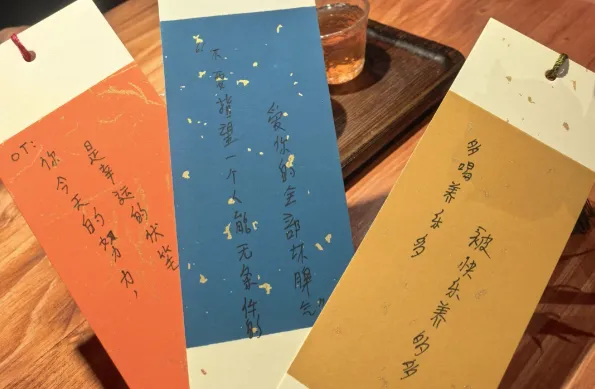 OT:
你今天的努力,
是幸运的伏笔
“不要望一个人能无条件的
愛你的全部坏脾气”
多喝养乐多
被快乐养多多